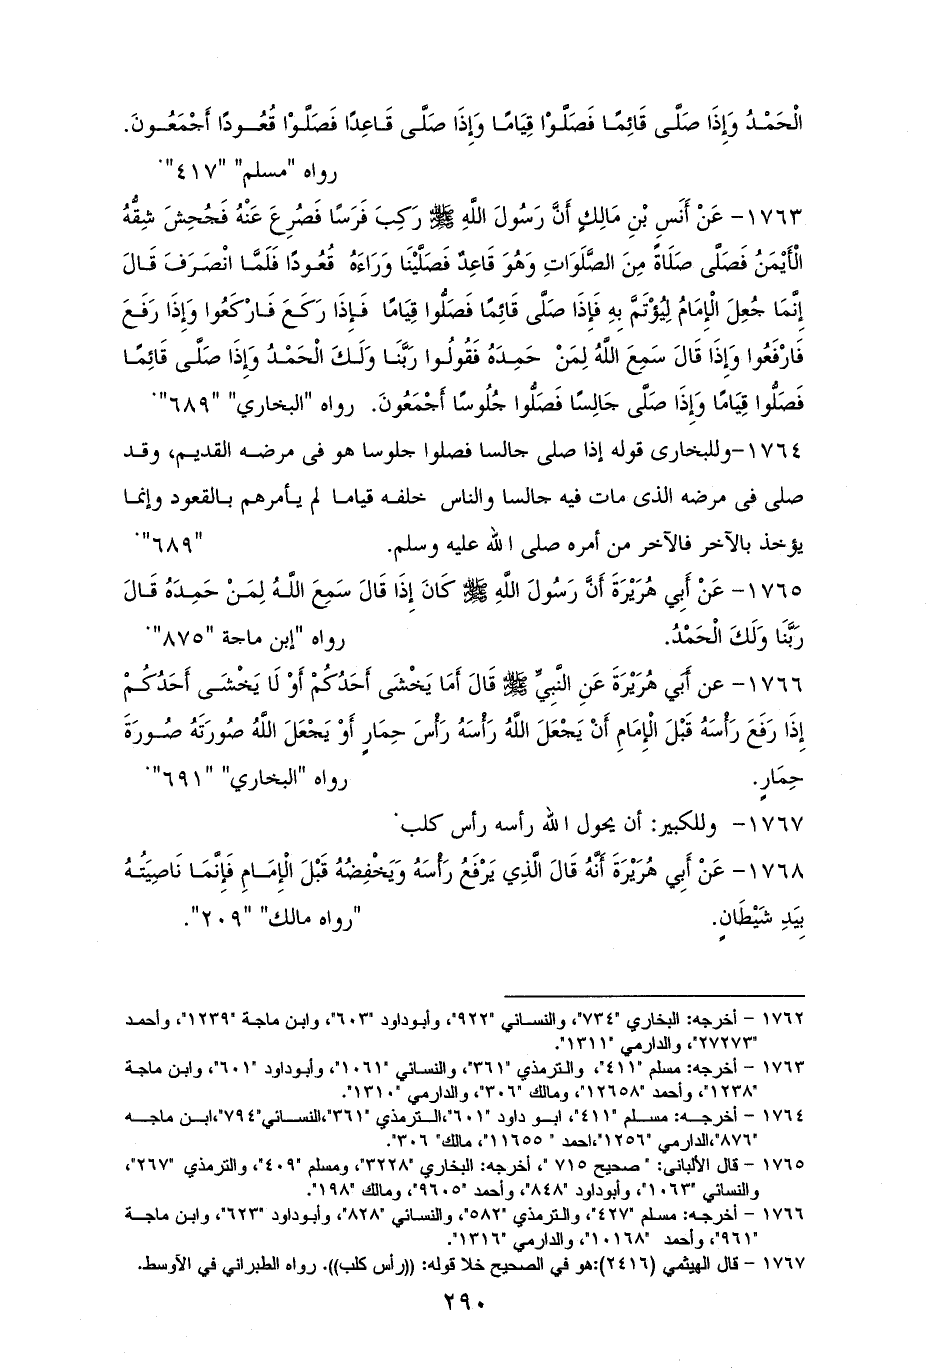 الْحَمْدُ وَإِذَا صَلَّى قَائِمًا فَصَلُّوْا قِيَامًا وَإِذَا صَلَّى قَاعِدًا فَصَلُّوْا قُعُودًا أَجْمَعُونَ.
رواه "مسلم" "٤١٧".
١٧٦٣- عَنْ أَنَسِ بْنِ مَالِكٍ أَنَّ رَسُولَ اللَّهِ ﷺ رَكِبَ فَرَسًا فَصُرِعَ عَنْهُ فَجُحِشَ شِقُّهُ
الْأَيْمَنُ فَصَلَّى صَلَاةً مِنَ الصَّلَوَاتِ وَهُوَ قَاعِدٌ فَصَلَّيْنَا وَرَاءَهُ قُعُودًا فَلَمَّا انْصَرَفَ قَالَ
إِنَّمَا جُعِلَ الْإِمَامُ لِيُؤْتَمَّ بِهِ فَإِذَا صَلَّى قَائِمًا فَصَلُّوا قِيَامًا فَإِذَا رَكَعَ فَارْكَعُوا وَإِذَا رَفَعَ
فَارْفَعُوا وَإِذَا قَالَ سَمِعَ اللَّهُ لِمَنْ حَمِدَهُ فَقُولُوا رَبَّنَا وَلَكَ الْحَمْدُ وَإِذَا صَلَّى قَائِمًا
فَصَلُّوا قِيَامًا وَإِذَا صَلَّى جَالِسًا فَصَلُّوا جُلُوسًا أَجْمَعُونَ. رواه "البخاري" "٦٨٩".
١٧٦٤-وللبخارى قوله إذا صلى جالسا فصلوا جلوسا هو فى مرضه القديم، وقد
صلى فى مرضه الذى مات فيه جالسا والناس خلفه قياما لم يأمرهم بالقعود وإنما
يؤخذ بالآخر فالآخر من أمره صلى الله عليه وسلم. "٦٨٩".
١٧٦٥- عَنْ أَبِي هُرَيْرَةَ أَنَّ رَسُولَ اللَّهِ ﷺ كَانَ إِذَا قَالَ سَمِعَ اللَّهُ لِمَنْ حَمِدَهُ قَالَ
رَبَّنَا وَلَكَ الْحَمْدُ. رواه "إبن ماجة "٨٧٥".
١٧٦٦- عن أَبِي هُرَيْرَةَ عَنِ النَّبِيِّ ﷺ قَالَ أَمَا يَخْشَى أَحَدُكُمْ أَوْ لَا يَخْشَى أَحَدُكُمْ
إِذَا رَفَعَ رَأْسَهُ قَبْلَ الْإِمَامِ أَنْ يَجْعَلَ اللَّهُ رَأْسَهُ رَأْسَ حِمَارٍ أَوْ يَجْعَلَ اللَّهُ صُورَتَهُ صُورَةَ
حِمَارٍ. رواه "البخاري" "٦٩١".
١٧٦٧- وللكبير: أن يحول الله رأسه رأس كلب.
١٧٦٨- عَنْ أَبِي هُرَيْرَةَ أَنَّهُ قَالَ الَّذِي يَرْفَعُ رَأْسَهُ وَيَخْفِضُهُ قَبْلَ الْإِمَامِ فَإِنَّمَا نَاصِيَتُهُ
بِيَدِ شَيْطَانٍ. "رواه مالك" "٢٠٩".
١٧٦٢ - أخرجه: البخاري "٧٣٤"، والنسائي "٩٢٢"، وأبوداود "٦٠٣"، وابن ماجة "١٢٣٩"، وأحمد
"٢٧٢٧٣"، والدارمي "١٣١١".
١٧٦٣ - أخرجه: مسلم "٤١١"، والترمذي "٣٦١"، والنسائي "١٠٦١"، وأبوداود "٦٠١"، وابن ماجة
"١٢٣٨"، وأحمد "١٢٦٥٨"، ومالك "٣٠٦"، والدارمي "١٣١٠".
١٧٦٤ - أخرجه: مسلم "٤١١"، ابو داود "٦٠١"،الترمذي "٣٦١"،النسائي"٧٩٤"،ابن ماجه
"٨٧٦"،الدارمي "١٢٥٦"،احمد " ١١٦٥٥"، مالك" ٣٠٦".
١٧٦٥ - قال الألبانى: " صحيح ٧١٥ "، أخرجه: البخاري "٣٢٢٨"، ومسلم "٤٠٩"، والترمذي "٢٦٧"،
والنسائي "١٠٦٣"، وأبوداود "٨٤٨"، وأحمد "٩٦٠٥"، ومالك "١٩٨".
١٧٦٦ - أخرجه: مسلم "٤٢٧"، والترمذي "٥٨٢"، والنسائي "٨٢٨"، وأبوداود "٦٢٣"، وابن ماجة
"٩٦١"، وأحمد "١٠١٦٨"، والدارمي "١٣١٦".
١٧٦٧ - قال الهيثمي (٢٤١٦):هو في الصحيح خلا قوله: ((رأس كلب)). رواه الطبراني في الأوسط.
٢٩٠